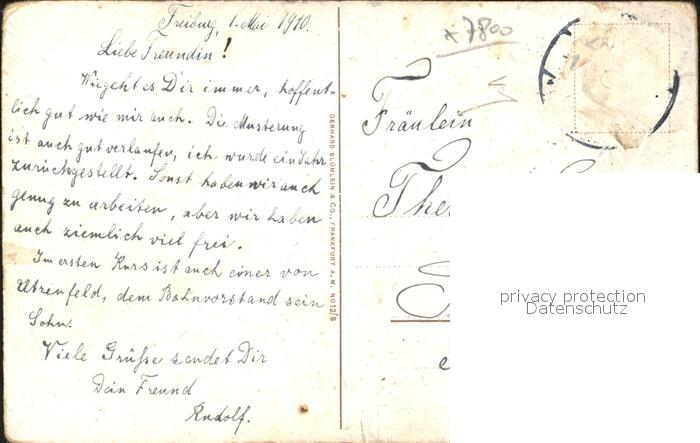 Freiburg, 1. Mai 1910.
Liebe Freundin!
Wie geht es Dir immer, hoffent-
lich gut wie mir auch. Die Musterung
ist auch gut verlaufen, ich wurde ein Jahr
zurückgestellt. Sonst haben wir auch
genug zu arbeiten, aber wir haben
auch ziemlich viel frei.
Im ersten Kurs ist auch einer von
Utzenfeld, dem Bahnvorstand sein
Sohn.
Viele Grüße sendet Dir
Dein Freund
Rudolf.
GERHARD BLÜMLEIN & CO., FRANKFURT A. M. NO 12/8
* 7800
Fräulein
The
privacy protection
Datenschutz